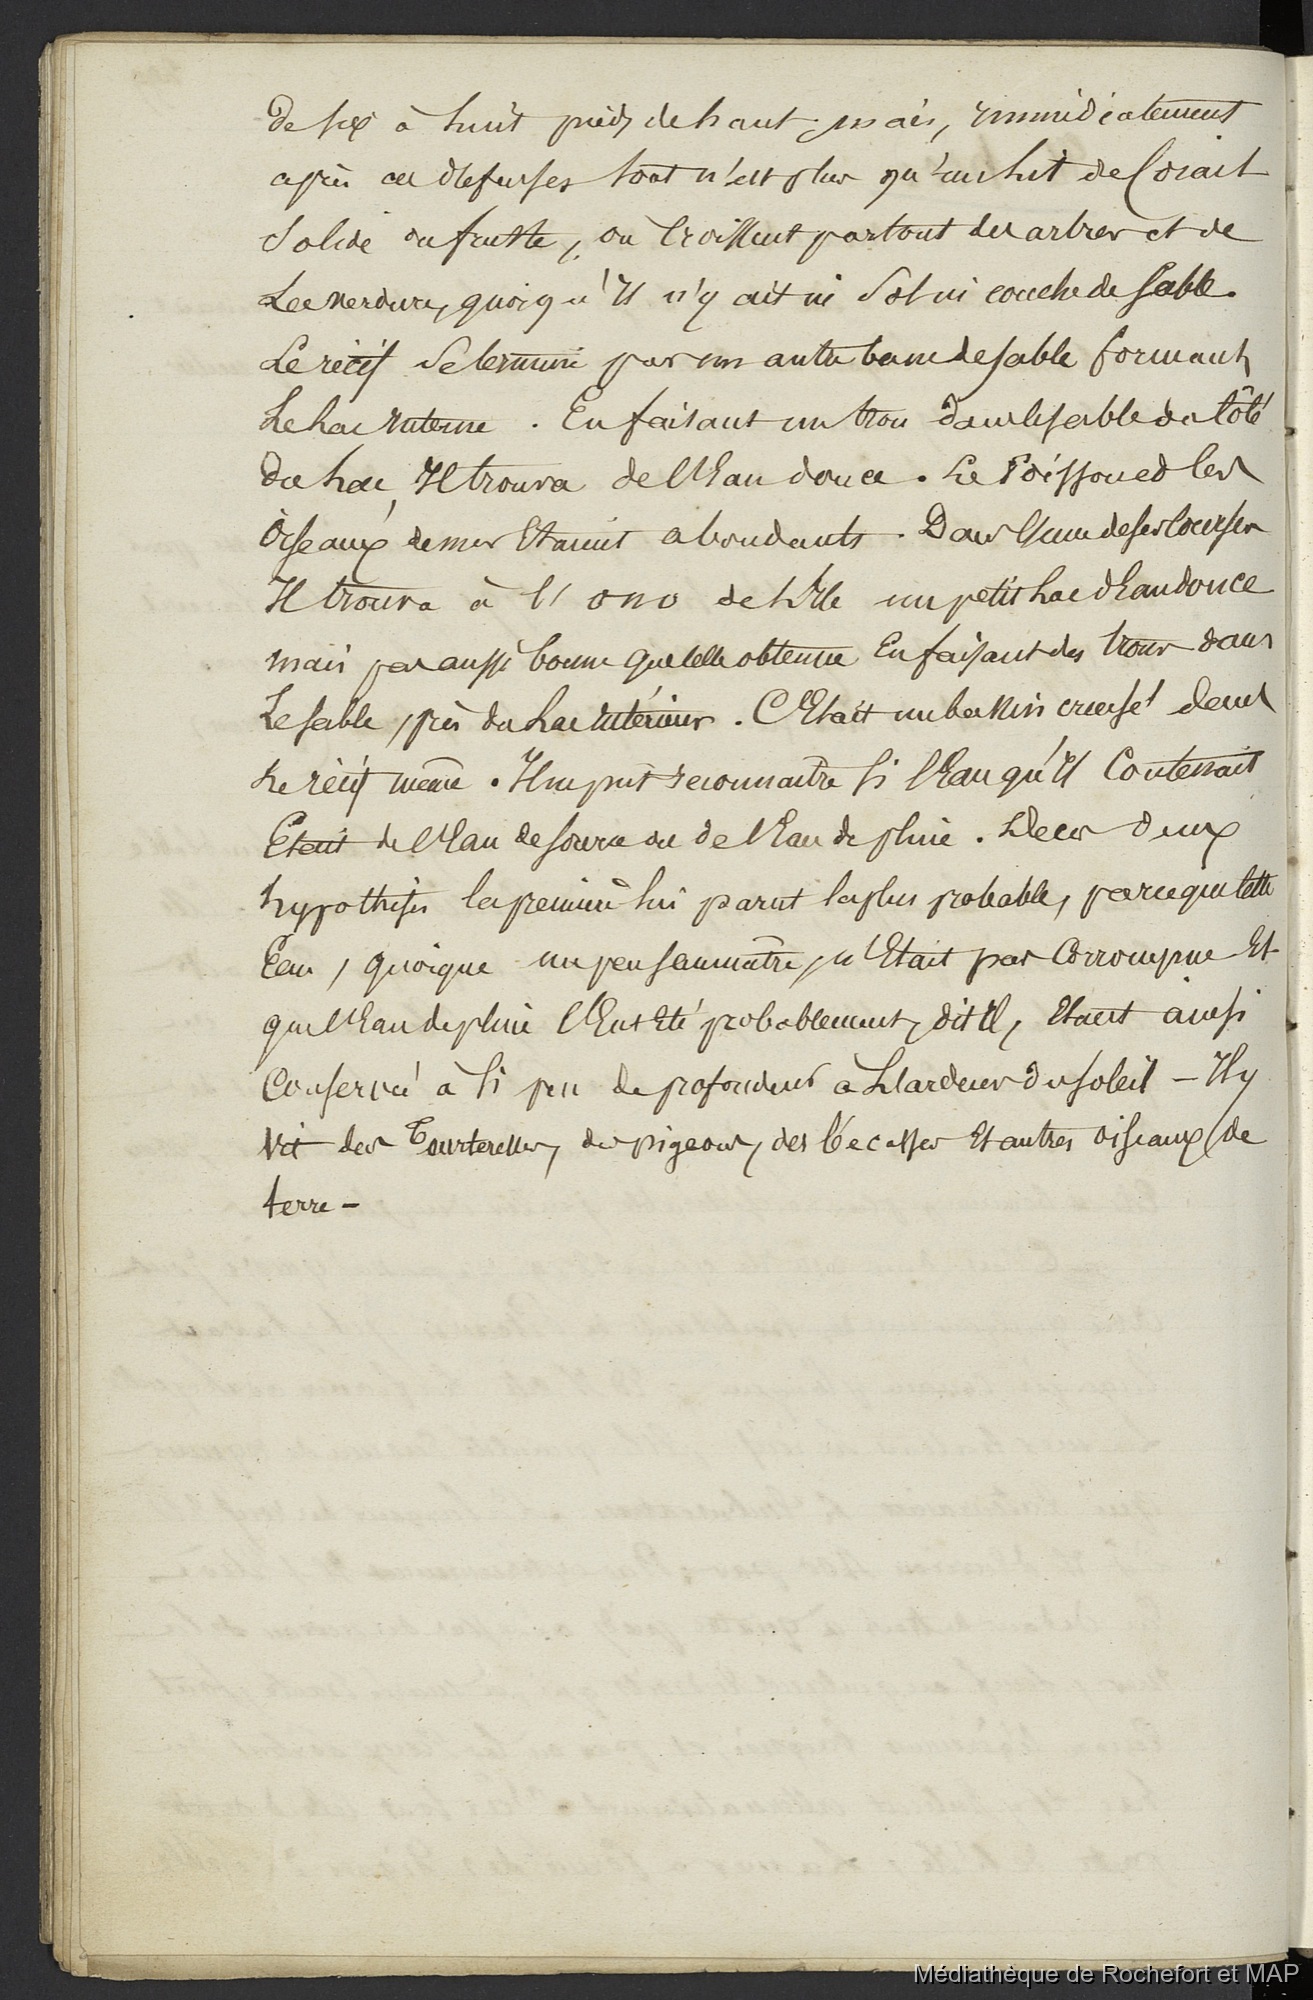 De six à huit pieds de haut, mais, immédiatement
après ces défenses tout n'est plus qu'un lit de Corail
Solide ou friable, où Croissent partout des arbres et de
La verdure, quoiqu'Il n'y ait ni Sol ni couche de Sable.
Le récif Se termine par un autre banc de sable formant
Le Lac Interne. En faisant un trou dans le sable du Côté
du Lac, Il trouva de l'Eau douce. Le Poisson et les
Oiseaux de mer Etaient abondants. Dans l'une de ses Courses
Il trouva à l'ONO de L'Ile un petit Lac d'Eau douce
mais pas aussi bonne que celle obtenue En faisant des trous dans
Le sable, près du Lac Intérieur. C'Etait un bassin creusé dans
Le récif même. Il ne put reconnaître Si l'Eau qu'Il Contenait
Etait de l'Eau de source ou de l'Eau de pluie. De ces deux
hypothèses la première lui parut la plus probable, parceque cette
Eau, quoique un peu saumâtre, n'Etait pas Corrompue Et
que l'Eau de pluie l'Eut Eté probablement, dit Il, Etant ainsi
Conservée à Si peu de profondeur à L'ardeur du soleil - Il y
vit des Tourterelles, des pigeons, des bécasses Et autres oiseaux de
terre -
Médiathèque de Rochefort et MAP